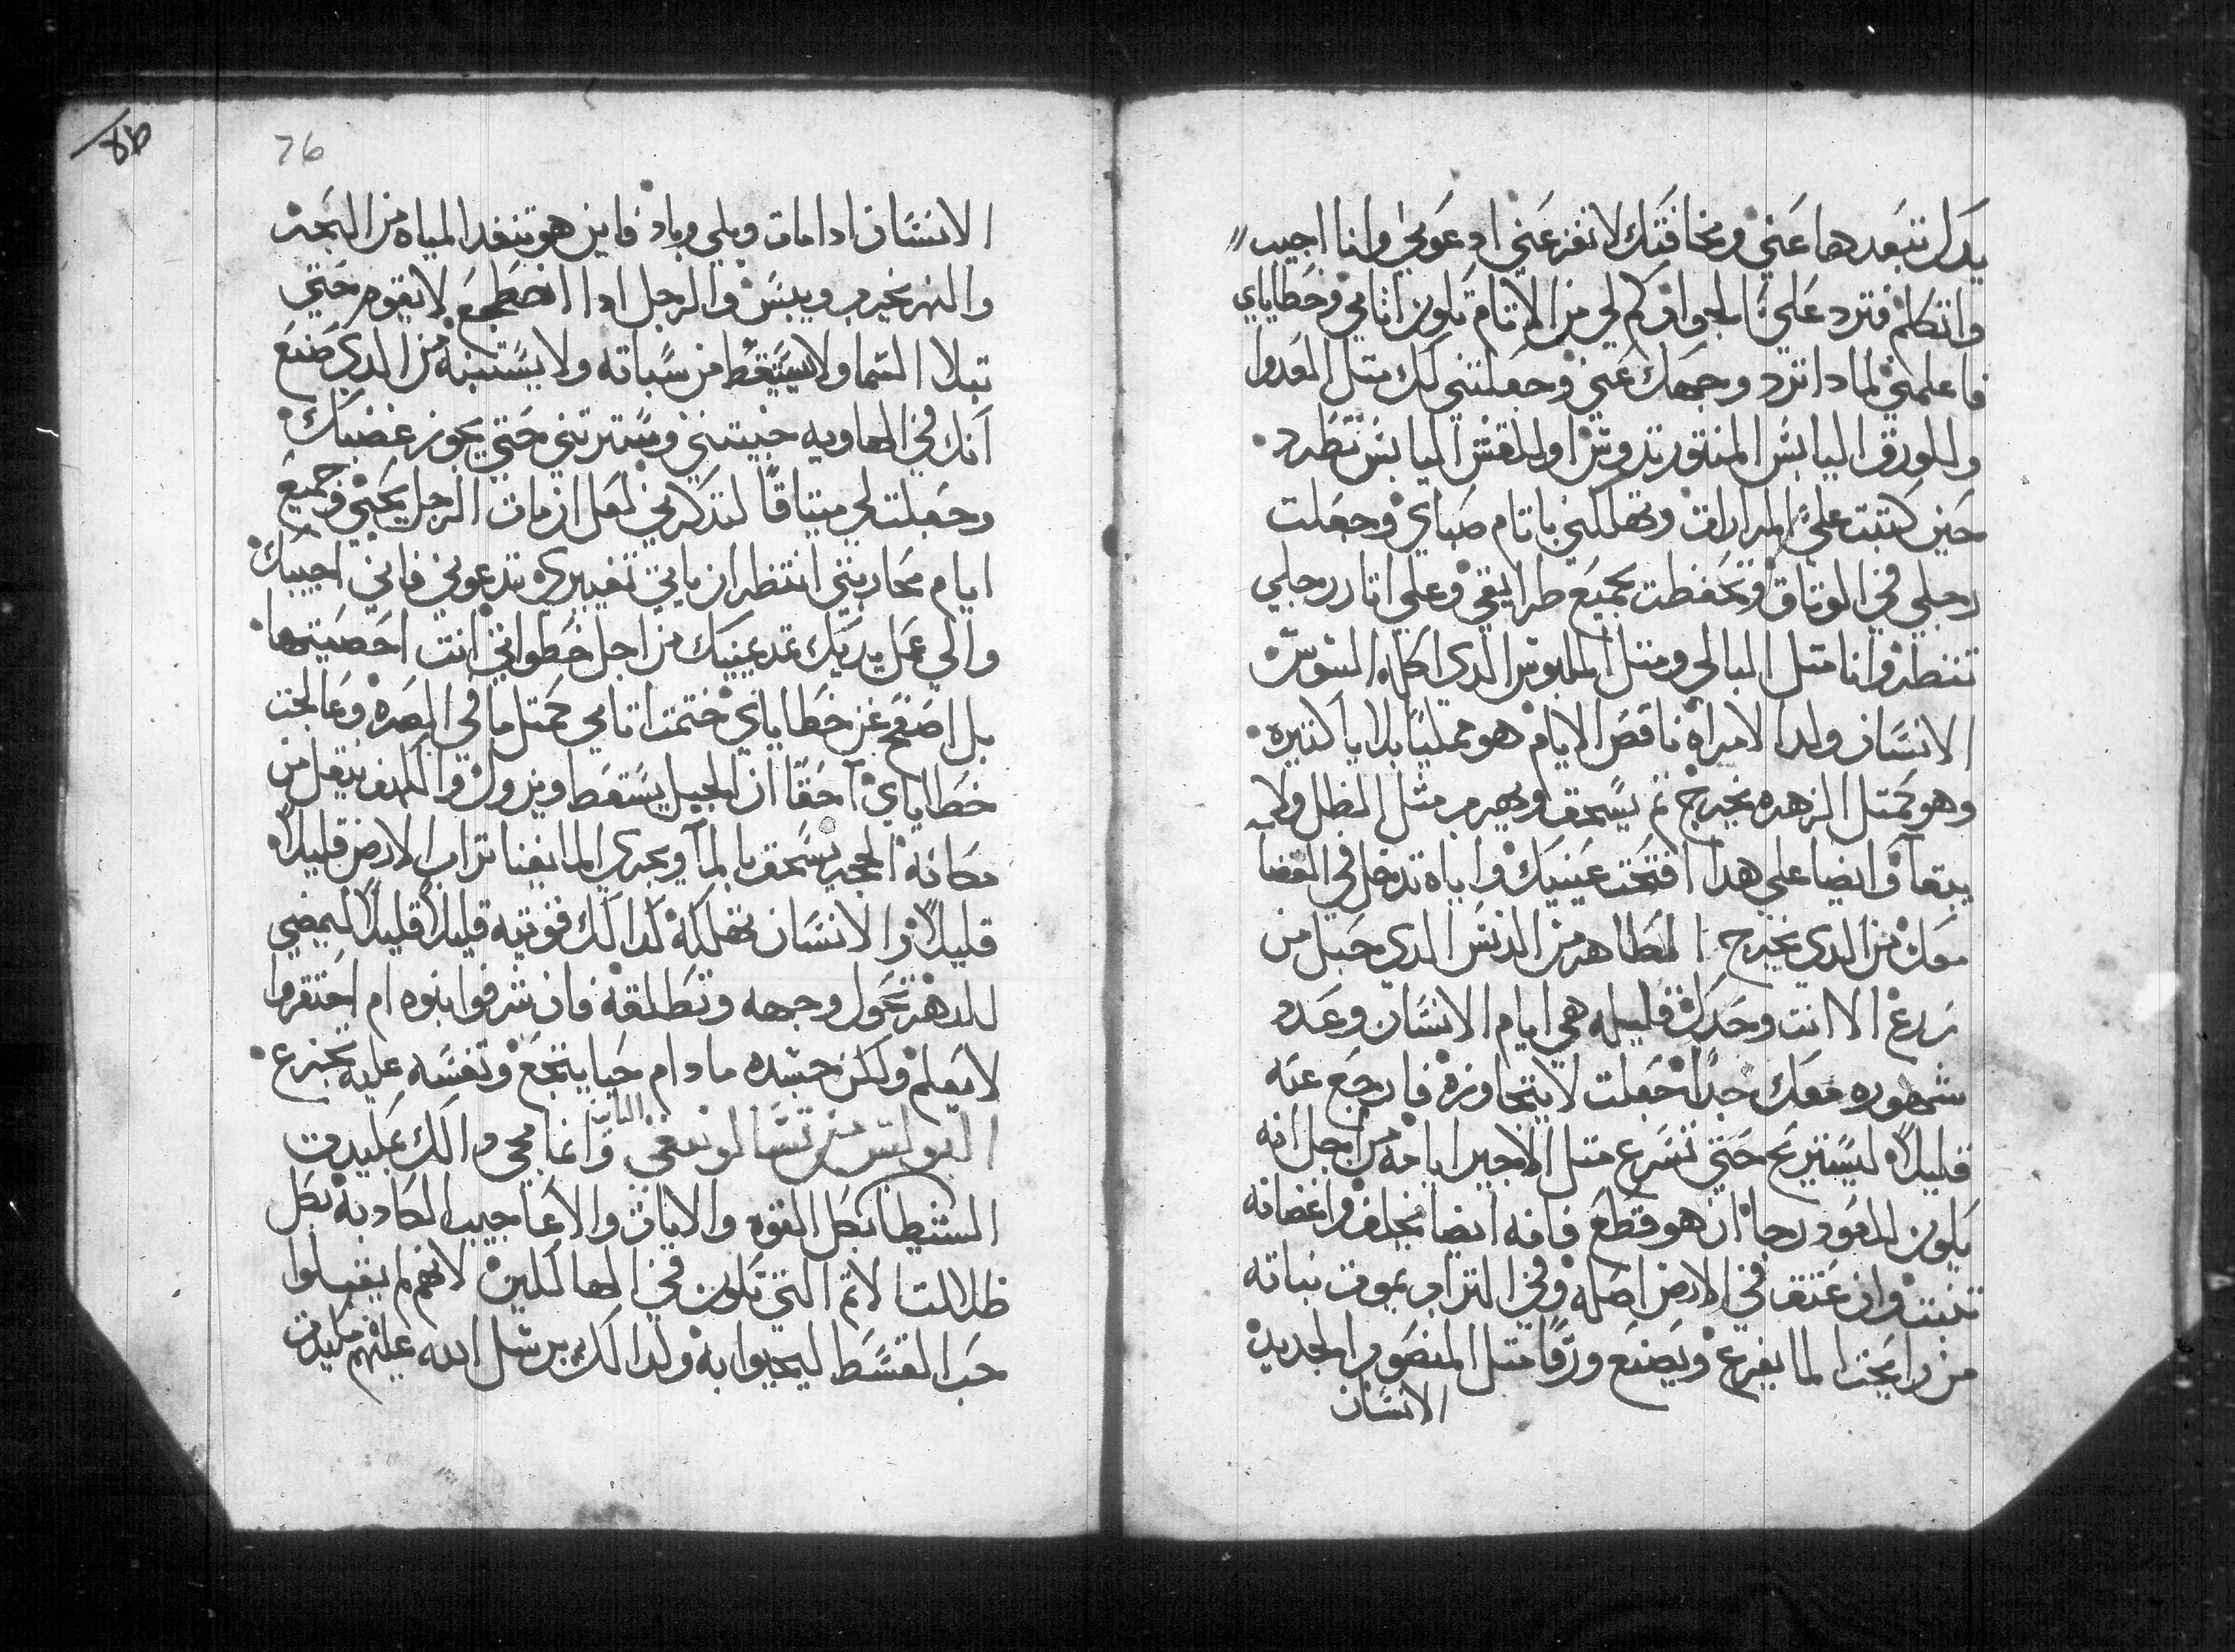 يدك تبعدها عني ومخافتك لا تفزعني ادعوني وانا اجيب
واتكلم فترد علي الجواب كم لي من الاتام تكون اتامي وخطاياي
فاعلمني لمادا ترد وجهك عني وجعلتني لك متل العدوا
والورق اليابس المنتور تدوس اوللقش اليابس تطرد
حين كتبت علي المرارات وتهللني باتام صباي وجعلت
رجلي في الوتاق وتحفطت بجميع طرايقي وعلي اتار رجلي
تنظر وانا متل البالي ومتل الملبوس الدي اكله السوس
الانسان ولد الامراه ناقص الايام هو ممتليا بلايا كتيره
وهو كمتل الزهره يخرج تم يسحق ويهرب مثل الظل ولا
يبقا وايضا علي هدا افتحت عينيك واياه تدخل في القضا
معك من الدي يخرج الطاهر من الدنس الدي حبل من
زرع الا انت وحدك قليله هي ايام الانسان وعدد
شهوره معك حدا جعلت لا يتجاوزه فارجع عنه
قليلا ليستريح حتي تسرع متل الاجير ايامه من اجل انه
يكون للعود رجا ان هو قطع فانه ايضا يخلف واغصانه
تنبت وان عتق في الارض اصله وفي التراب يموت نباته
من رايحت الما يفرع ويصنع ورقا متل المنصوب الجديد
الانسان
76
الانسان ادا مات وبلي وباد فاين هو تنفد المياه من البحر
والنهر يخرب وييبس والرجل ادا اضطجع لا يقوم حتي
تبلا السما ولا يستيقظ من سباته ولا يستنبه من الدي صنع
انك في الهاويه خبيتني وسترتني حتي يجوز غضبك
وجعلت لي ميتاقا لتدكرني لعل ان مات الرجل يحيي في جميع
ايام محاربتي انتظر ان ياتي تغييري تدعوني فاني اجيبك
والي عمل يديك تمد عينيك من اجل خطواتي انت احصيتها
بل اصفح عن خطاياي ختمت اتامي كمتل ما في الصره وعالجت
خطاياي احقا ان الجبل يسقط ويزول والكهف ينقل من
مكانه الحجر يسحق بالما ويجري الما ايضا تراب الارض قليلا
قليلا والانسان تهلكه كدالك فوتيه قليلا قليلا ليمضي
للدهر تحول وجهه وتطلقه فان شرفوا بنوه ام احتقروا
لا يعلم ولكن جسده ما دام حيا يتوجع ونفسه عليه تجزع
البولس من تسالونيقي التانيه وانما مجي دالك بمكيدت
الشيطان بكل القوه والايات والاعاجيب الكادبه بكل
ظلالت الاتم التي تكون في الهالكين لانهم لم يقبلوا
حب القسط ليحيوا به ولدالك يرسل الله عليهم مكيدت